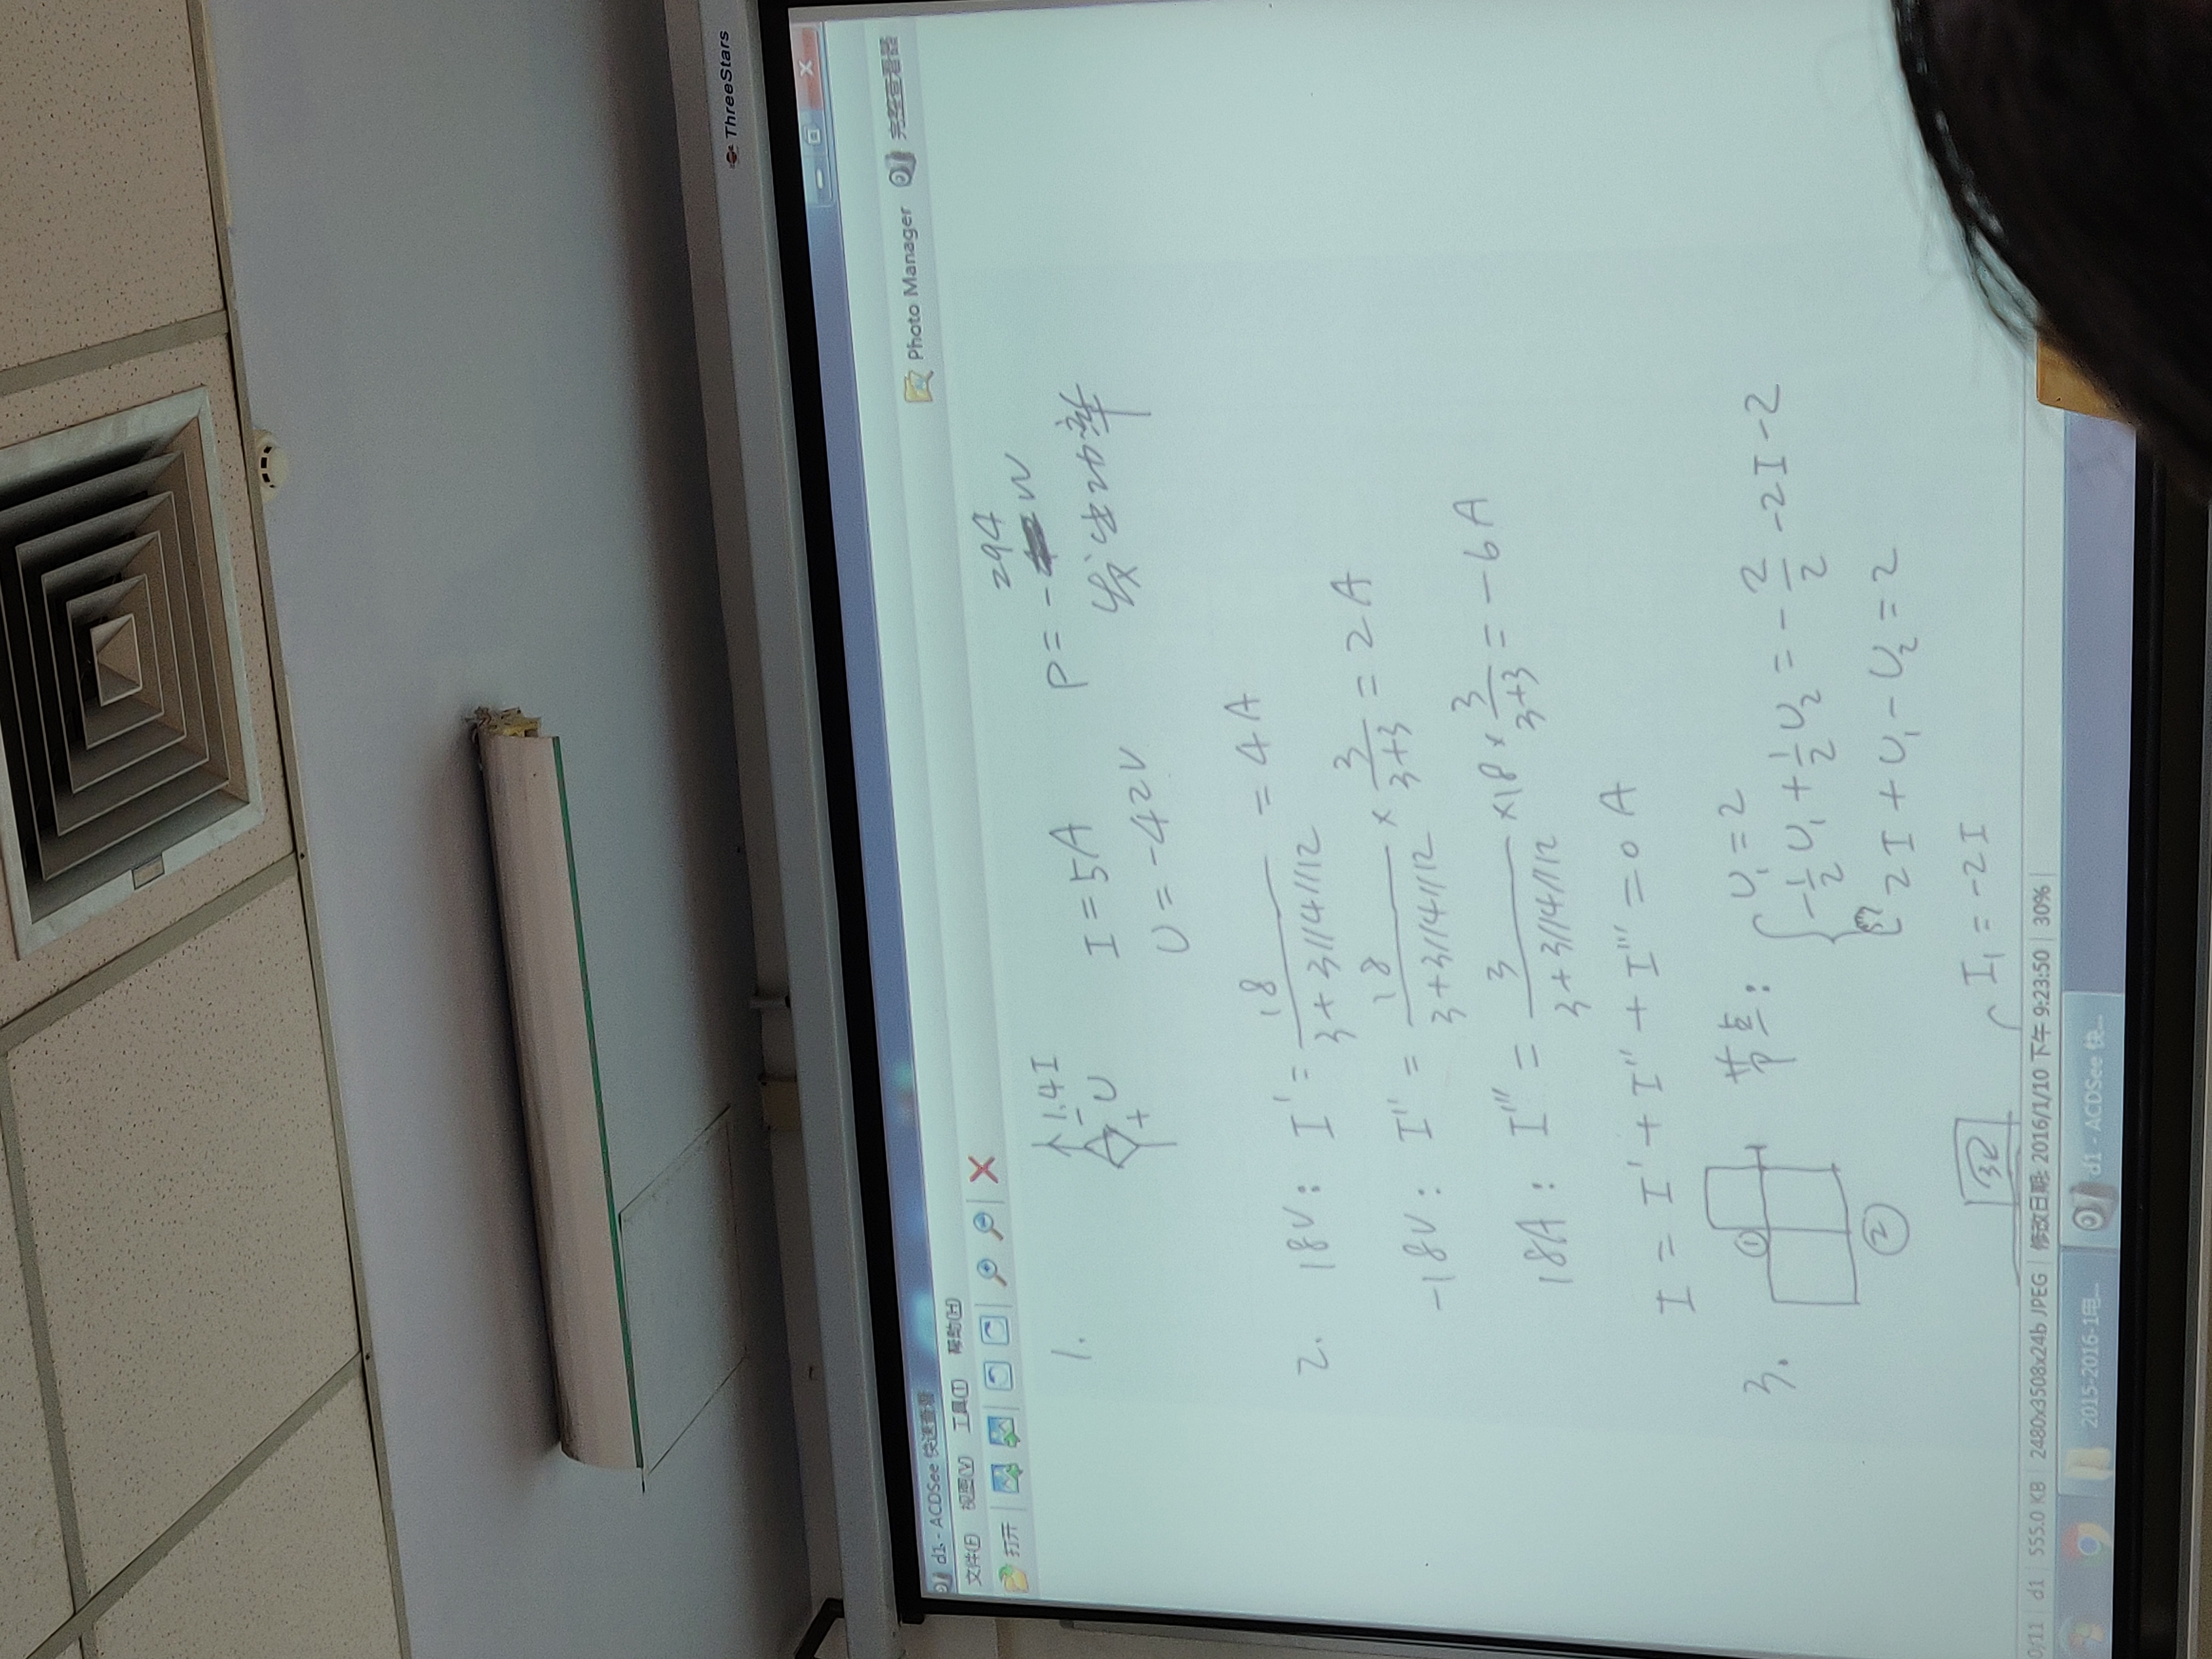 ThreeStars
d1 - ACDSee 快速查看
文件(F) 视图(V) 工具(T) 帮助(H)
Photo Manager 完整查看器
打开
1.
1.4I
-
U
+
I = 5A
U = -42V
294
P = - W
发出功率
2. 18V: I' = 18/(3+3//4//12) = 4A
-18V: I'' = 18/(3+3//4//12) × 3/(3+3) = 2A
18A: I''' = 3/(3+3//4//12) ×18 × 3/(3+3) = -6A
I = I' + I'' + I''' = 0A
3. ① ② 节点:
U₁ = 2
-1/2 U₁ + 1/2 U₂ = - 2/2 - 2I - 2
2I + U₁ - U₂ = 2
I₁ = -2I
0/11 d1 555.0 KB 2480x3508x24b JPEG 修改日期: 2016/1/10 下午 9:23:50 30%
2015-2016-1电...
d1 - ACDSee 快...